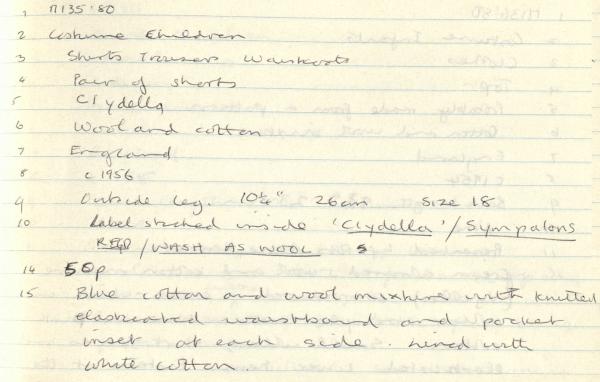 1 M135:80
2 Costume Children
3 Shorts Trousers Waistcoats
4 Pair of shorts
5 Clydella
6 Wool and cotton
7 England
8 c 1956
9 Outside leg. 10¼" 26cm Size 18
10 Label stitched inside 'Clydella'/Sympalons
REGD/WASH AS WOOL 5
14 50p
15 Blue cotton and wool mixture with knitted
elasticated waistband and pocket
inset at each side. Lined with
white cotton.